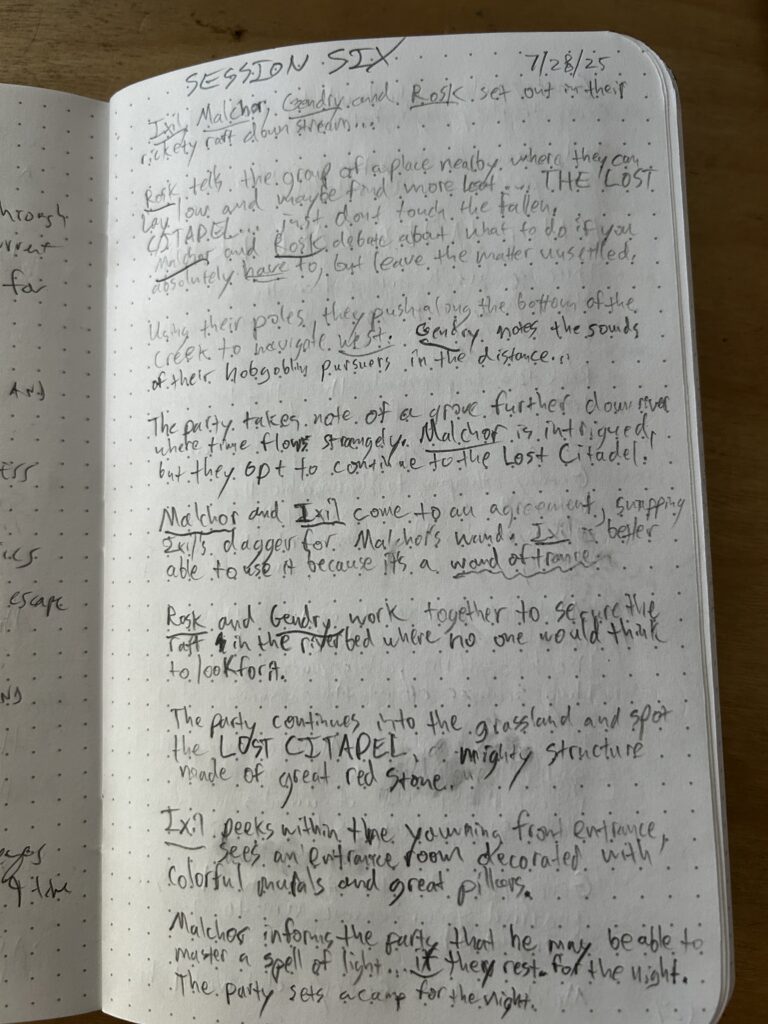 SESSION SIX
7/28/25
Ixil, Malchor, Gendry and Rosk set out in their
rickety raft down stream...
Rosk tells the group of a place nearby where they can
lay low and maybe find more loot... THE LOST
CITADEL... just dont touch the fallen.
Malchor and Rosk debate about what to do if you
absolutely have to, but leave the matter unsettled.
Using their poles, they push along the bottom of the
creek to navigate west. Gendry notes the sounds
of their hobgoblin pursuers in the distance...
The party takes note of a grove further down river
where time flows strangely. Malchor is intrigued,
but they opt to continue to the Lost Citadel.
Malchor and Ixil come to an agreement, swapping
Ixil's dagger for Malchor's wand. Ixil is better
able to use it because it's a wand of trance.
Rosk and Gendry work together to secure the
raft in the riverbed where no one would think
to look for it.
The party continues into the grassland and spot
the LOST CITADEL, a mighty structure
made of great red stone.
Ixil peeks within the yawning front entrance,
sees an entrance room decorated with
colorful murals and great pillars.
Malchor informs the party that he may be able to
master a spell of light... if they rest for the night.
The party sets a camp for the night.
hrough
rrent
for
AND
ESS
escape
ND